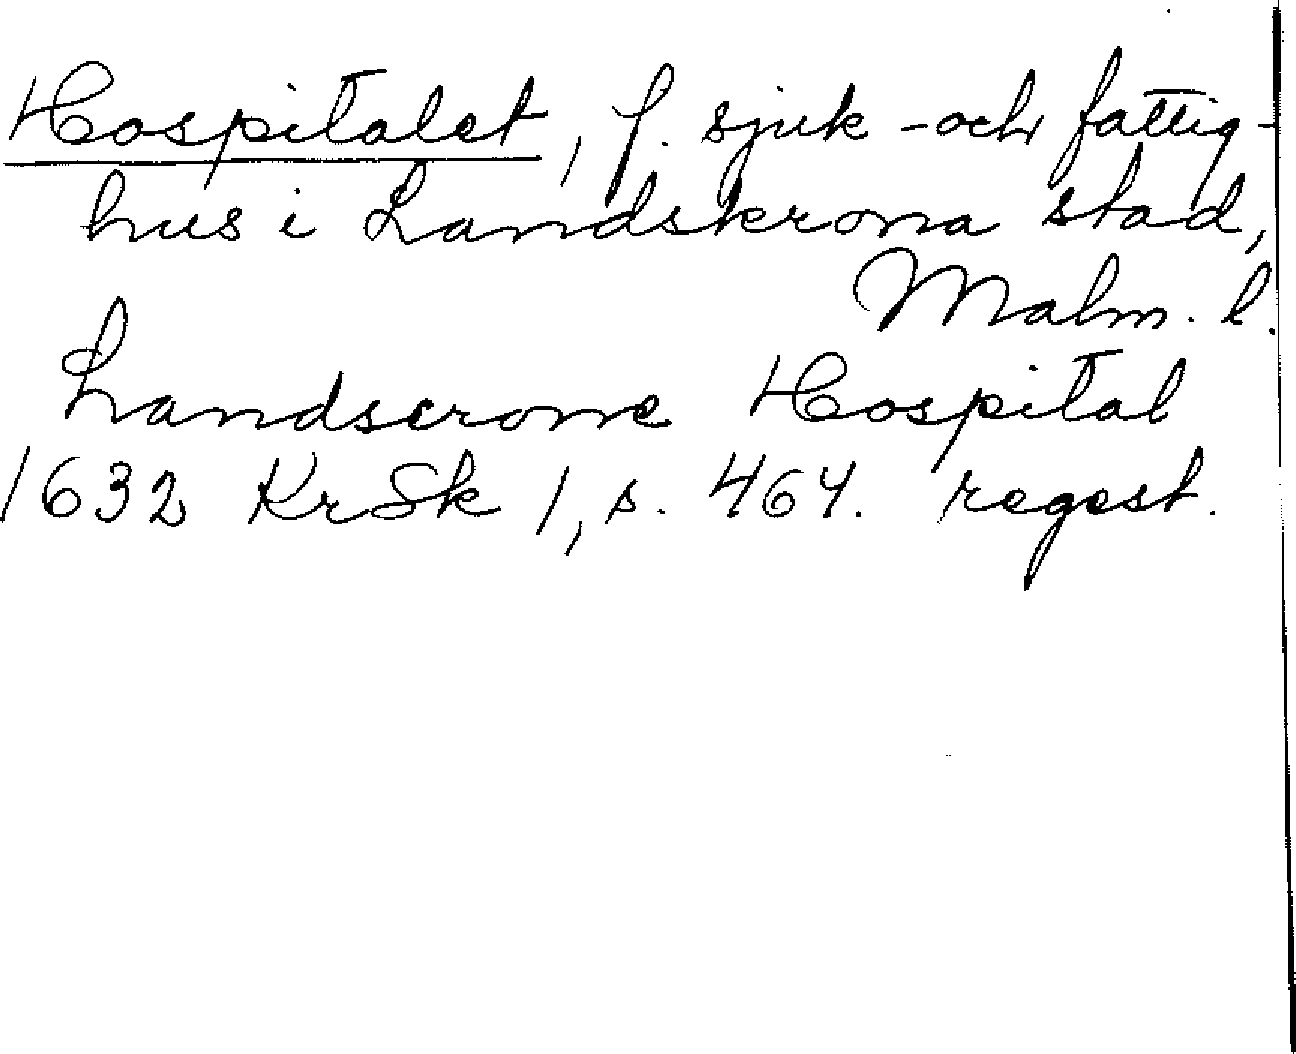 Hospitalet, f. sjuk- och fattig-
hus i Landskrona stad,
Malm. l.
Landscrone Hospital
1632 KrSk 1, s. 464. regest.